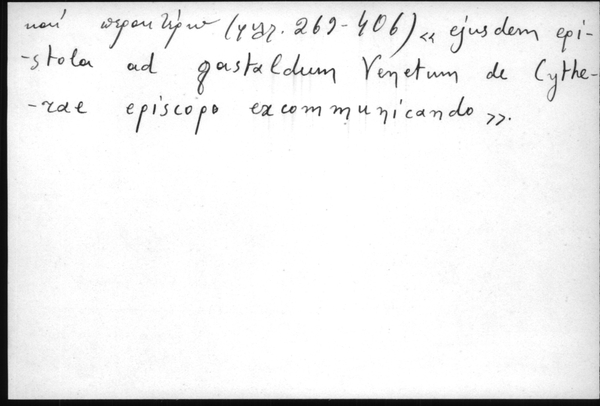 καὶ περαιτέρω (φυλ. 269-406) « ejusdem epi-
-stola ad gastaldum Venetum de Cythe-
-rae episcopo excommunicando ».